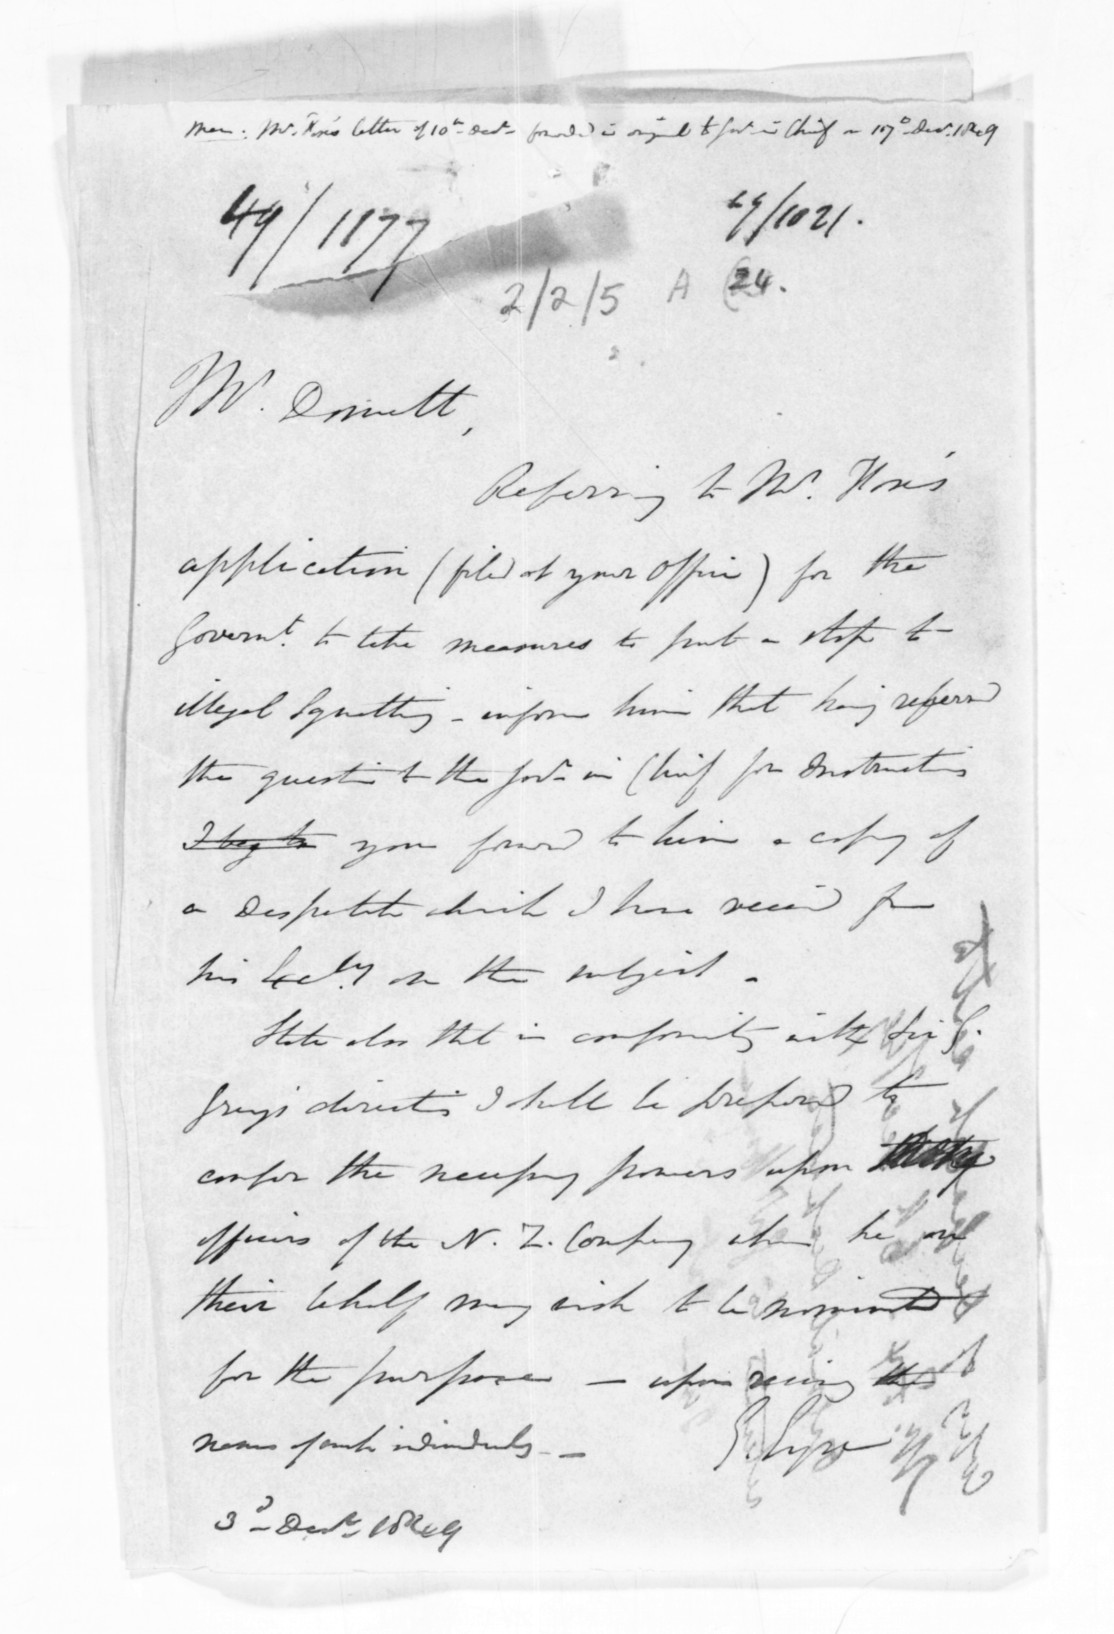 Mem: Mr. Fox's letter of 10th Decr. forwarded in original to Govr. in Chief on 17th Decr. 1849
49/1177
49/1021.
2/2/5 A 24.
Mr. Domett,
Referring to Mr. Fox's
application (filed at your office) for the
Governt. to take measures to put a stop to
illegal Squatting - inform him that having referred
the question to the Govr. in Chief for Instructions
I beg to you forward to him a copy of
a Despatch which I have received from
his Excly. on the subject.
State also that in conformity with Sir G.
Grey's directions I shall be prepared to
confer the necessary powers upon
officers of the N. Z. Company whom he on
their behalf may wish to be nominated
for the purpose — upon receiving the
names of such individuals. —
E. Eyre
3d Decr. 1849